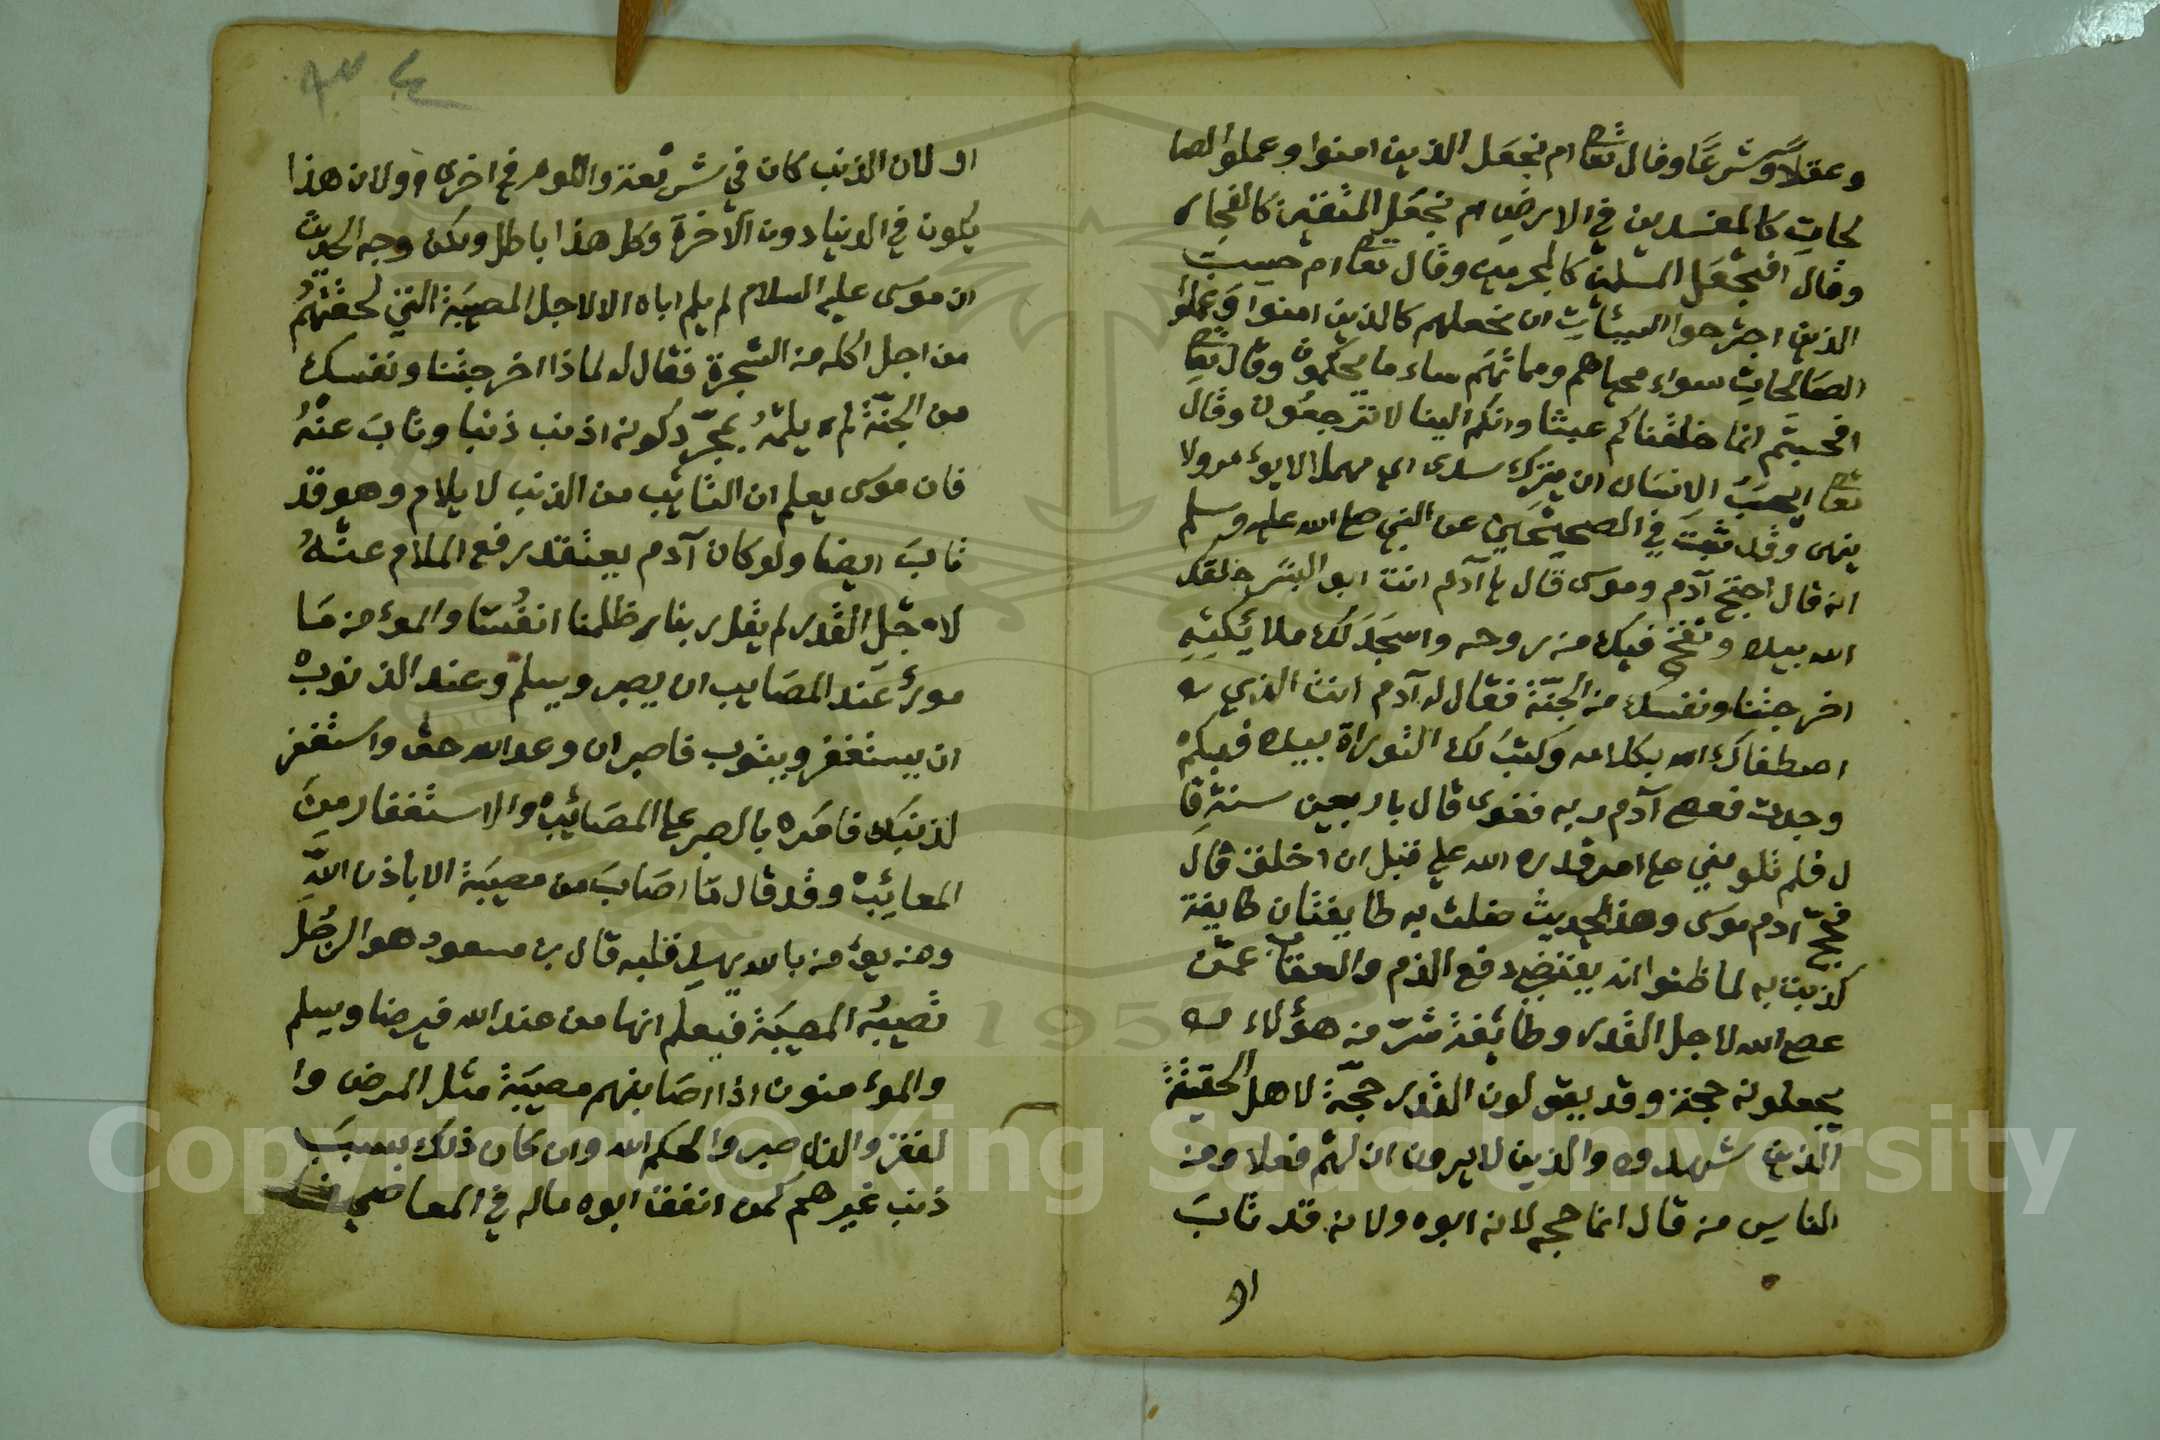 وعقلاً وشرعًا وقال تعا ام نجعل الذين امنوا وعملوا الصا
لحاتِ كالمفسدين في الارض ام نجعل المتقين كالفجار
وقال افنجعل المسلمين كالمجرمين وقال تعا ام حسب
الذين اجترحوا السيئات ان نجعلهم كالذين امنوا وعملوا
الصالحات سواء محياهم ومماتهم ساء ما يحكمون وقال تعا
افحسبتم انما خلقناكم عبثا وانكم الينا لا ترجعون وقال
تعا ايحسب الانسان ان يترك سدى اي مهملا لا يوءمر ولا
ينهى وقد ثبت في الصحيحين عن النبي صلى الله عليه وسلم
انه قال احتج آدم وموسى قال يا آدم انت ابو البشر خلقك
الله بيده ونفخ فيك من روحه واسجد لك ملائكته
اخرجتنا ونفسك من الجنّة فقال له آدم انت الذي
اصطفاك الله بكلامه وكتب لك التوراة بيده فبكم
وجدت فعصى آدم ربه فغوى قال باربعين سنة قا
ل فلم تلومني على امر قدره الله علي قبل ان اخلق قال
فحجّ آدم موسى وهذا الحديث ضلت به طايفتان طايفة
كذبت به لما ظنوا انه يقتضي رفع الذم والعقاب عمّن
عصى الله لاجل القدر وطائفة شرّ من هؤلاء
يجعلونه حجة وقد يقولون القدر حجّة لاهل الحقيقة
الذين شهدوه والذين لا يرون ان لهم فعلا ومن
الناس من قال انما حجه لانه ابوه ولانه قد تاب
او
او لان الذنب كان في شريعة واللوم في اخرى او لان هذا
يكون في الدنيا دون الآخرة وكل هذا باطل ولكن وجه الحديث
ان موسى عليه السلام لم يلم اباه الا لاجل المصيبة التي لحقتهم
من اجل اكله من الشجرة فقال له لماذا اخرجتنا ونفسك
من الجنّة لم يلمهُ بمجرّد كونه اذنب ذنبا وتابَ عنهُ
فان موسى يعلم ان التائب من الذنب لا يلام وهو قد
تابَ ايضا ولو كان آدم يعتقد رفع الملام عنهُ
لاجل القدر لم يقل ربنا ظلمنا انفُسنا والموءمن مَا
مورء عند المصايب ان يصبر ويسلم وعند الذنوب
ان يستغفر ويتوب فاصبر ان وعد الله حق واستغفر
لذنبك فامَره بالصبر على المصَائب والاستغفار من
المعائب وقد قال مَا اصَابَ من مصيبَة الا باذن اللهِ
ومن يوءمن بالله يهدِ قلبه قال بن مسعود هو الرجُل
تصيبُه المصيبَة فيعلم انها من عند الله فيرضا ويسلم
والموءمنون اذا اصَابتهم مصيبَة مثل المرض وا
لفقر والذل صبروا لحكم الله وان كان ذلك بسبَب
ذنب غيرهم كمن انفق ابوه ماله في المعاصي
Copyright © King Saud University
1957